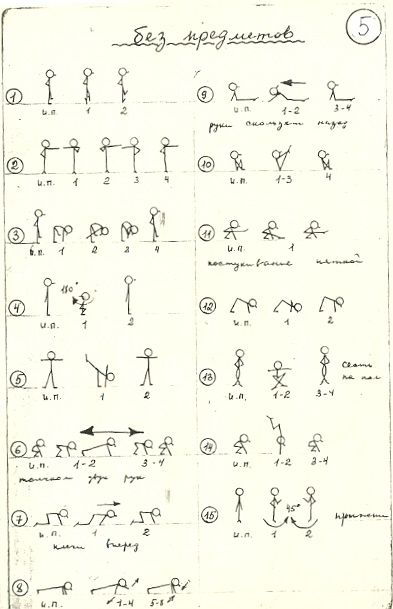 без предметов
5
1
и.п. 1 2
2
и.п. 1 2 3 4
3
и.п. 1 2 3 4
4
180°
и.п. 1 2
5
и.п. 1 2
6
и.п. 1-2 3-4
толчком двух рук
7
и.п. 1 2
плечи вперед
8
и.п. 1-4 5-8
9
и.п. 1-2 3-4
руки скользят назад
10
и.п. 1-3 4
11
и.п. 1
постукивание пяткой
12
и.п. 1 2
13
и.п. 1-2 3-4
Сесть
на пол
14
и.п. 1-2 3-4
15
45°
и.п. 1 2
прыжки